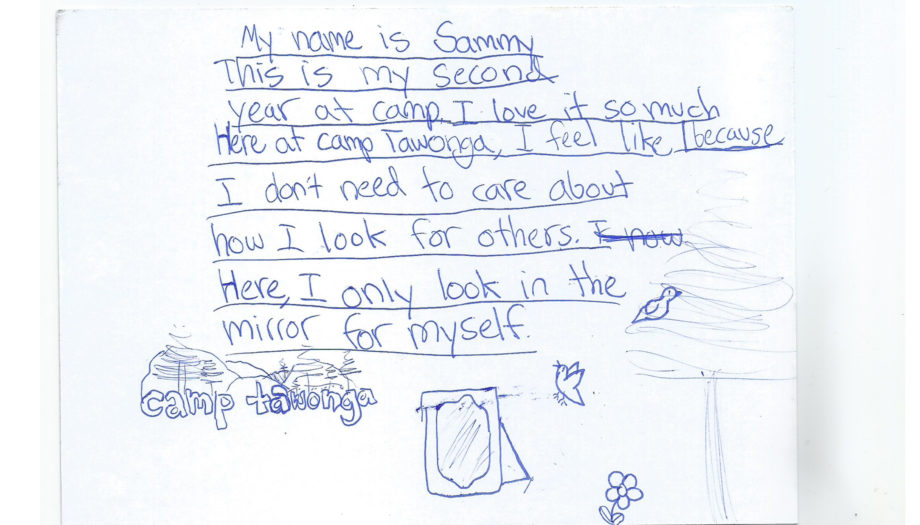 My name is Sammy
This is my second
year at camp. I love it so much
Here at camp Tawonga, I feel like, because
I don't need to care about
how I look for others. I now
Here, I only look in the
mirror for myself.
camp tawonga